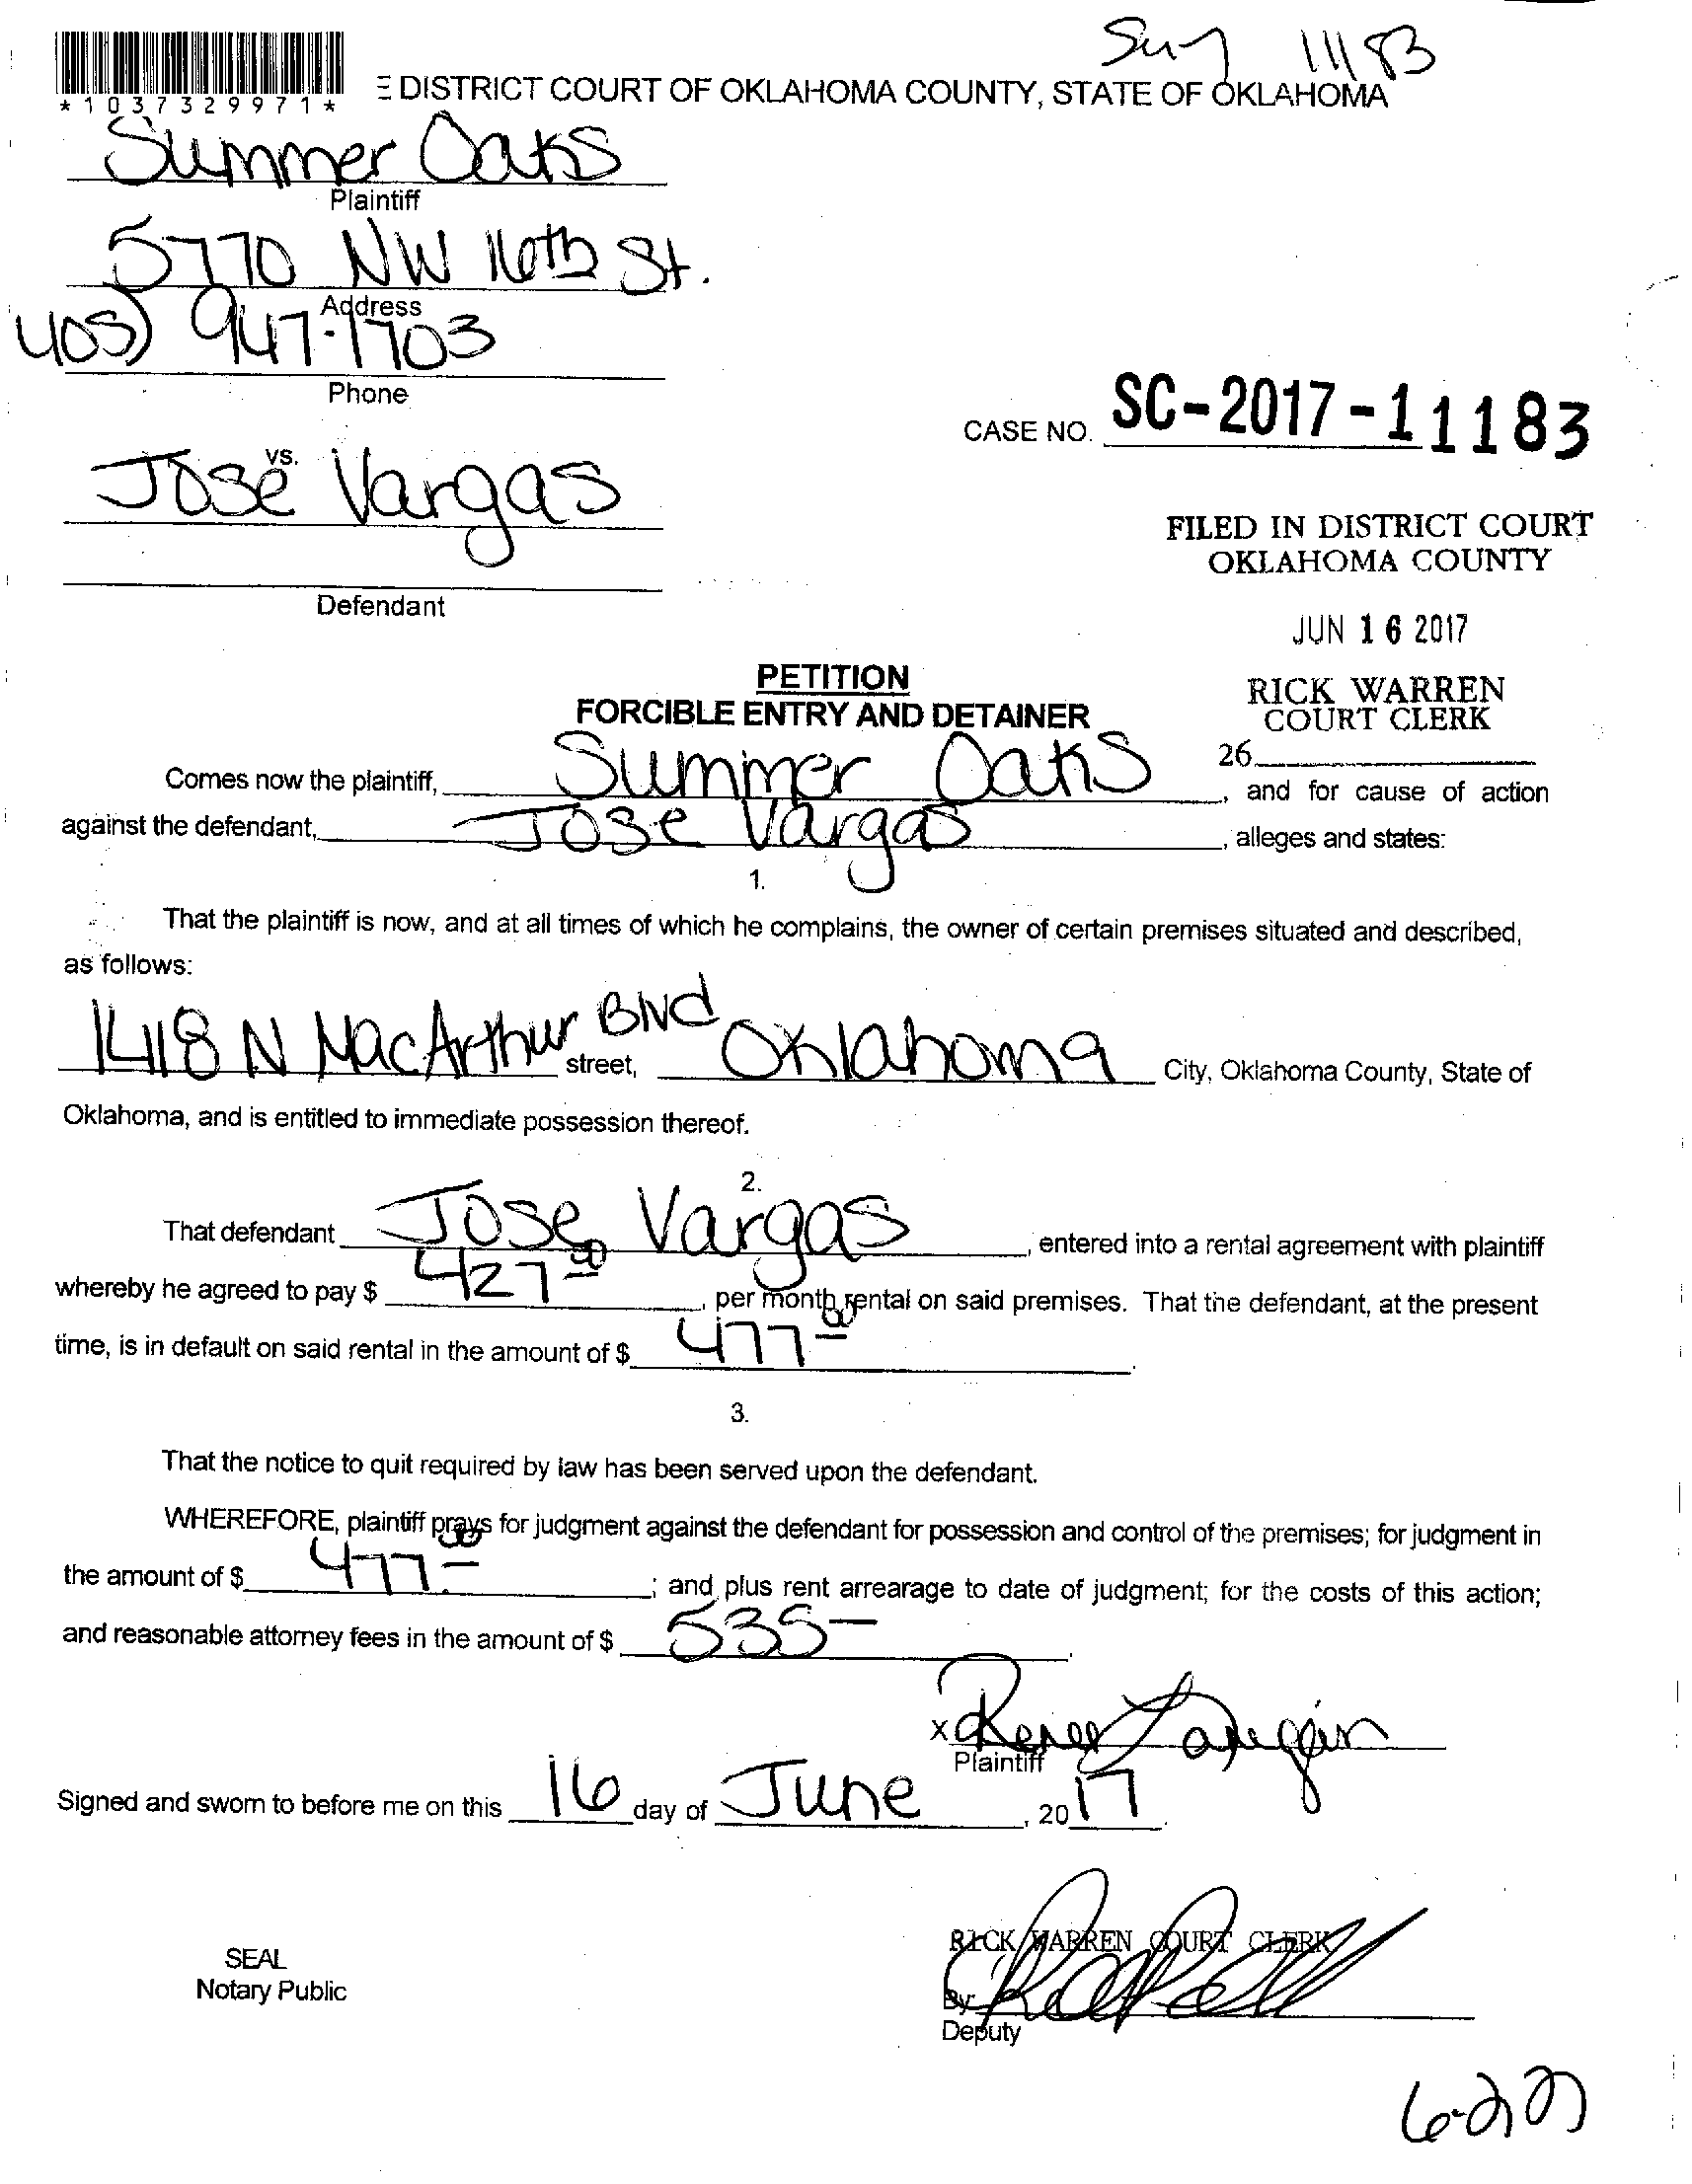 11183
*1037329971*
E DISTRICT COURT OF OKLAHOMA COUNTY, STATE OF OKLAHOMA
Summer Oaks
Plaintiff
5770 NW 16th St.
Address
405) 947-1703
Phone
CASE NO. SC-2017-11183
vs.
Jose Vargas
FILED IN DISTRICT COURT
OKLAHOMA COUNTY
Defendant
JUN 16 2017
PETITION
FORCIBLE ENTRY AND DETAINER
RICK WARREN
COURT CLERK
26
Comes now the plaintiff, Summer Oaks, and for cause of action
against the defendant, Jose Vargas, alleges and states:
1.
That the plaintiff is now, and at all times of which he complains, the owner of certain premises situated and described,
as follows:
1418 N MacArthur Blvd street, Oklahoma City, Oklahoma County, State of
Oklahoma, and is entitled to immediate possession thereof.
2.
That defendant Jose Vargas, entered into a rental agreement with plaintiff
whereby he agreed to pay $ 427 00, per month rental on said premises. That the defendant, at the present
time, is in default on said rental in the amount of $ 477 00.
3.
That the notice to quit required by law has been served upon the defendant.
WHEREFORE, plaintiff prays for judgment against the defendant for possession and control of the premises; for judgment in
the amount of $ 477.00; and plus rent arrearage to date of judgment; for the costs of this action;
and reasonable attorney fees in the amount of $ 535-.
x Renee
Plaintiff
Signed and sworn to before me on this 16 day of June, 2017.
RICK WARREN COURT CLERK
SEAL
Notary Public
By
Deputy